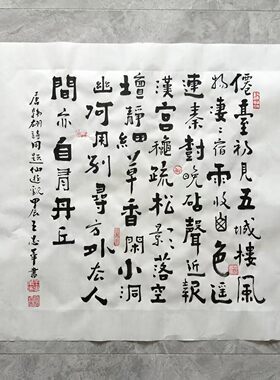 僊臺初見五城樓風
物淒々宿雨收山色遥
連秦樹晚砧聲近報
漢宫穐疏松影落空
壇靜細草香閑小洞
幽何用别尋方外去人
間亦自有丹丘
唐韓翃詩同題仙遊觀 甲辰王志華書